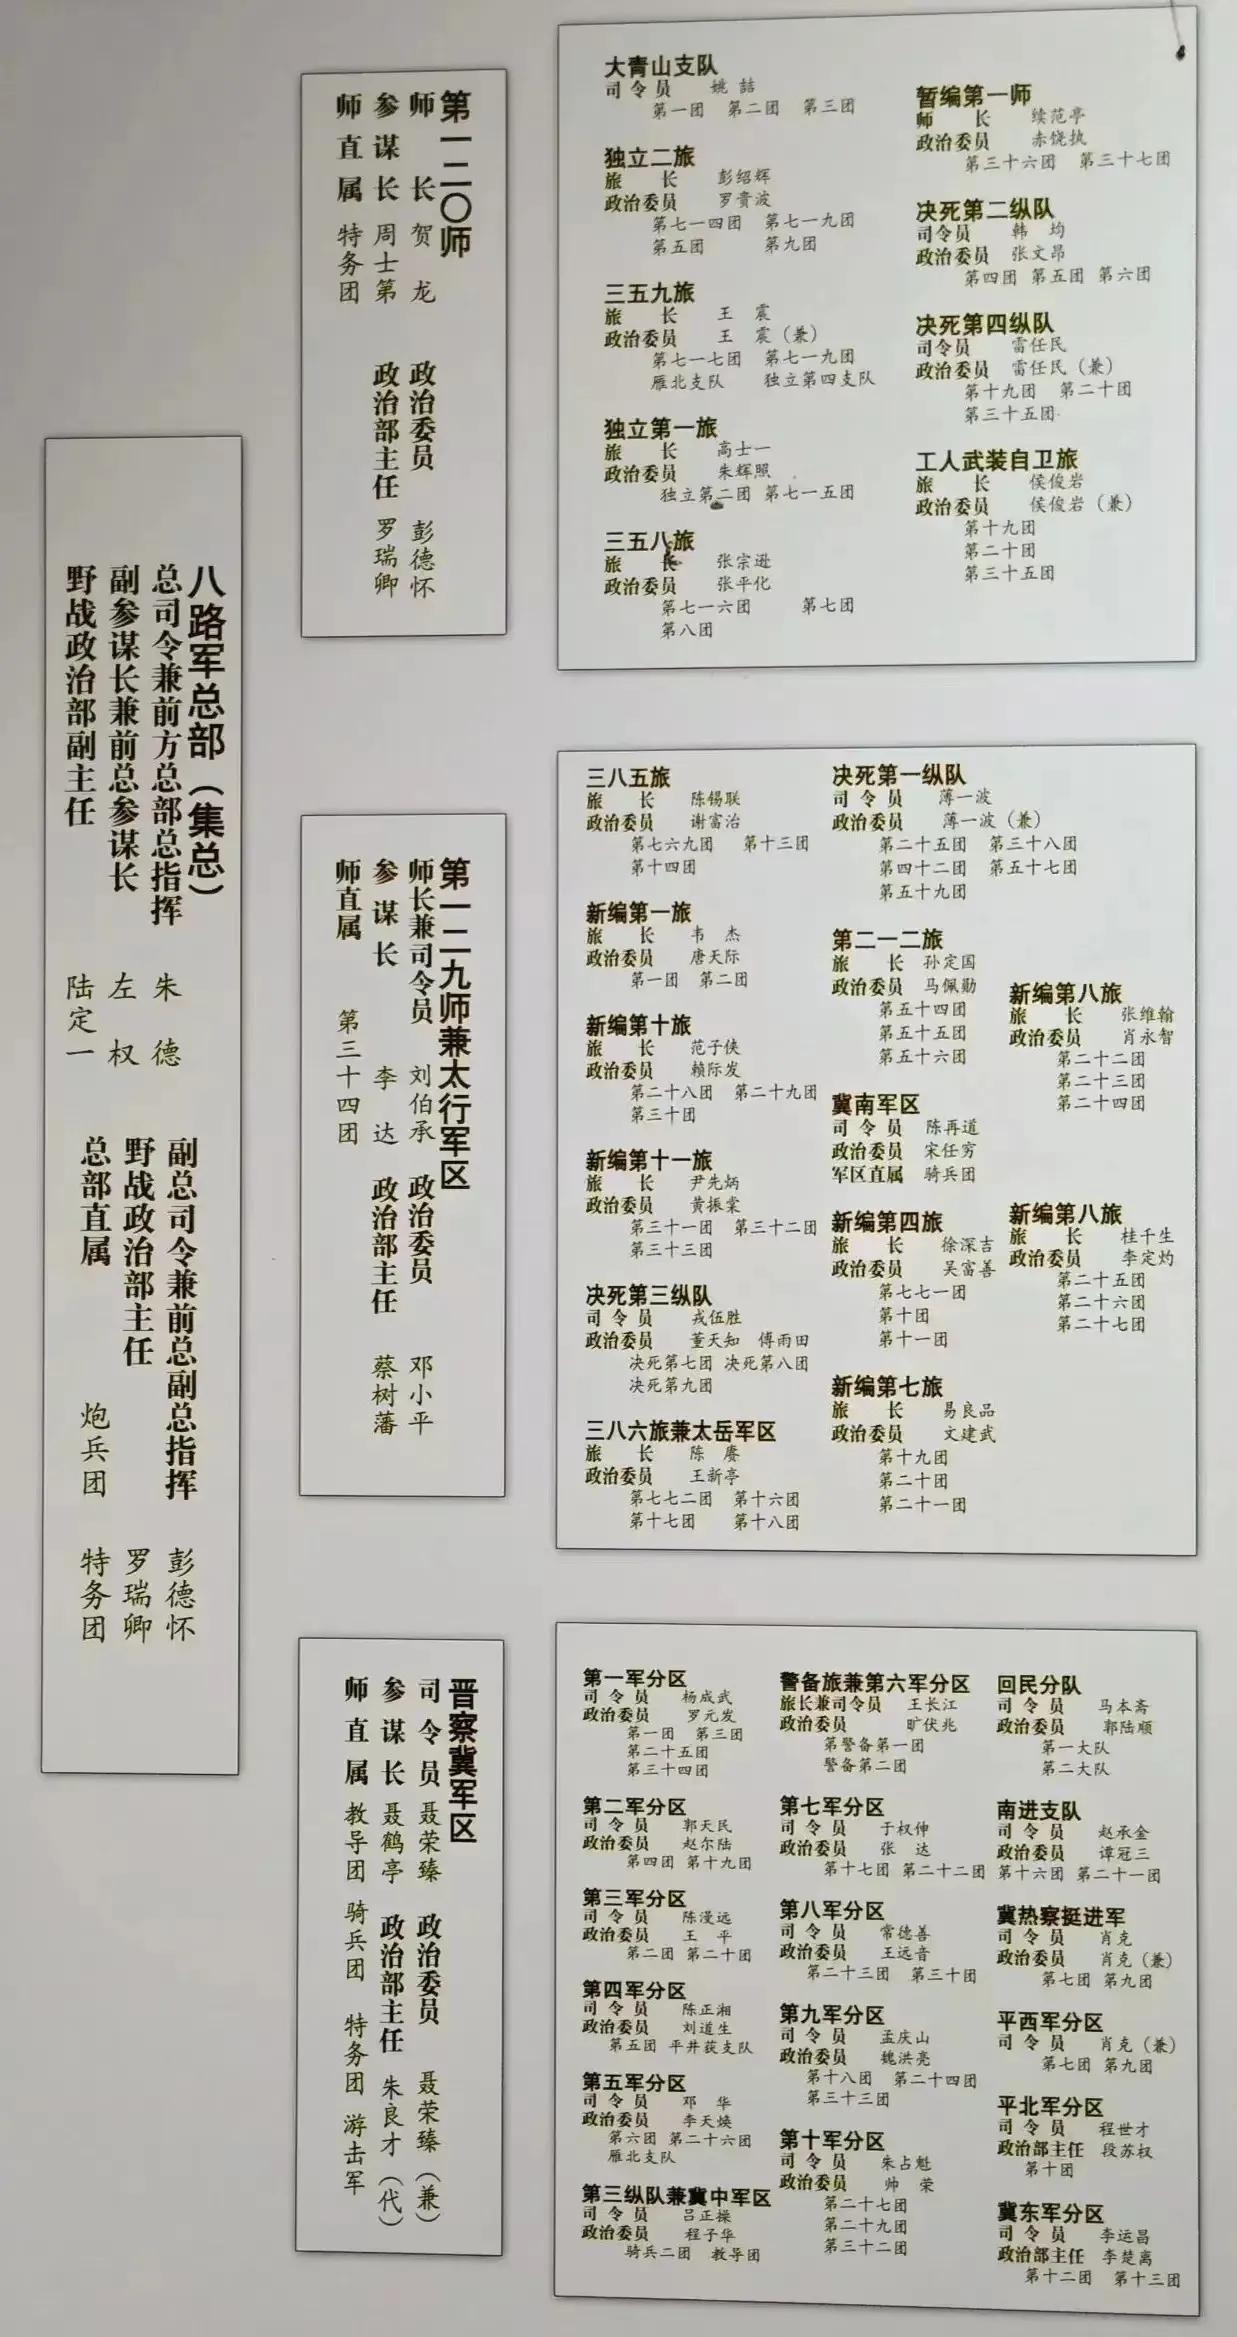 八路军总部（集总）
总司令兼前方总部总指挥 朱德
副总司令兼前总副总指挥 彭德怀
副参谋长兼前总参谋长 左权
野战政治部主任 罗瑞卿
野战政治部副主任 陆定一
总部直属 炮兵团 特务团
第一二〇师
师长 贺龙 政治委员 彭德怀
参谋长 周士第 政治部主任 罗瑞卿
师直属 特务团
大青山支队
司令员 姚喆
第一团 第二团 第三团
独立二旅
旅长 彭绍辉
政治委员 罗贵波
第七一四团 第七一九团
第五团 第九团
三五九旅
旅长 王震
政治委员 王震（兼）
第七一七团 第七一九团
雁北支队 独立第四支队
独立第一旅
旅长 高士一
政治委员 朱辉照
独立第二团 第七一五团
三五八旅
旅长 张宗逊
政治委员 张平化
第七一六团 第七团
第八团
暂编第一师
师长 续范亭
政治委员 赤饶执
第三十六团 第三十七团
决死第二纵队
司令员 韩均
政治委员 张文昂
第四团 第五团 第六团
决死第四纵队
司令员 雷任民
政治委员 雷任民（兼）
第十九团 第二十团
第三十五团
工人武装自卫旅
旅长 侯俊岩
政治委员 侯俊岩（兼）
第十九团
第二十团
第三十五团
第一二九师兼太行军区
师长兼司令员 刘伯承 政治委员 邓小平
参谋长 李达 政治部主任 蔡树藩
师直属 第三十四团
三八五旅
旅长 陈锡联
政治委员 谢富治
第七六九团 第十三团
第十四团
新编第一旅
旅长 韦杰
政治委员 唐天际
第一团 第二团
新编第十旅
旅长 范子侠
政治委员 赖际发
第二十八团 第二十九团
第三十团
新编第十一旅
旅长 尹先炳
政治委员 黄振棠
第三十一团 第三十二团
第三十三团
决死第三纵队
司令员 戎伍胜
政治委员 董天知 傅雨田
决死第七团 决死第八团
决死第九团
三八六旅兼太岳军区
旅长 陈赓
政治委员 王新亭
第七七二团 第十六团
第十七团 第十八团
决死第一纵队
司令员 薄一波
政治委员 薄一波（兼）
第二十五团 第三十八团
第四十二团 第五十七团
第五十九团
第二一二旅
旅长 孙定国
政治委员 马佩勋
第五十四团
第五十五团
第五十六团
冀南军区
司令员 陈再道
政治委员 宋任穷
军区直属 骑兵团
新编第四旅
旅长 徐深吉
政治委员 吴富善
第七七一团
第十团
第十一团
新编第七旅
旅长 易良品
政治委员 文建武
第十九团
第二十团
第二十一团
新编第八旅
旅长 张维翰
政治委员 肖永智
第二十二团
第二十三团
第二十四团
新编第八旅
旅长 桂干生
政治委员 李定灼
第二十五团
第二十六团
第二十七团
晋察冀军区
司令员 聂荣臻 政治委员 聂荣臻（兼）
参谋长 聂鹤亭 政治部主任 朱良才（代）
师直属 教导团 骑兵团 特务团 游击军
第一军分区
司令员 杨成武
政治委员 罗元发
第一团 第三团
第二十五团
第三十四团
第二军分区
司令员 郭天民
政治委员 赵尔陆
第四团 第十九团
第三军分区
司令员 陈漫远
政治委员 王平
第二团 第二十团
第四军分区
司令员 陈正湘
政治委员 刘道生
第五团 平井获支队
第五军分区
司令员 邓华
政治委员 李天焕
第六团 第二十六团
雁北支队
第三纵队兼冀中军区
司令员 吕正操
政治委员 程子华
骑兵二团 教导团
警备旅兼第六军分区
旅长兼司令员 王长江
政治委员 旷伏兆
第警备第一团
警备第二团
第七军分区
司令员 于权伸
政治委员 张达
第十七团 第二十二团
第八军分区
司令员 常德善
政治委员 王远音
第二十三团 第三十团
第九军分区
司令员 孟庆山
政治委员 魏洪亮
第十八团 第二十四团
第三十三团
第十军分区
司令员 朱占魁
政治委员 帅荣
第二十七团
第二十九团
第三十二团
回民分队
司令员 马本斋
政治委员 郭陆顺
第一大队
第二大队
南进支队
司令员 赵承金
政治委员 谭冠三
第十六团 第二十一团
冀热察挺进军
司令员 肖克
政治委员 肖克（兼）
第七团 第九团
平西军分区
司令员 肖克（兼）
第七团 第九团
平北军分区
司令员 程世才
政治部主任 段苏权
第十团
冀东军分区
司令员 李运昌
政治部主任 李楚离
第十二团 第十三团